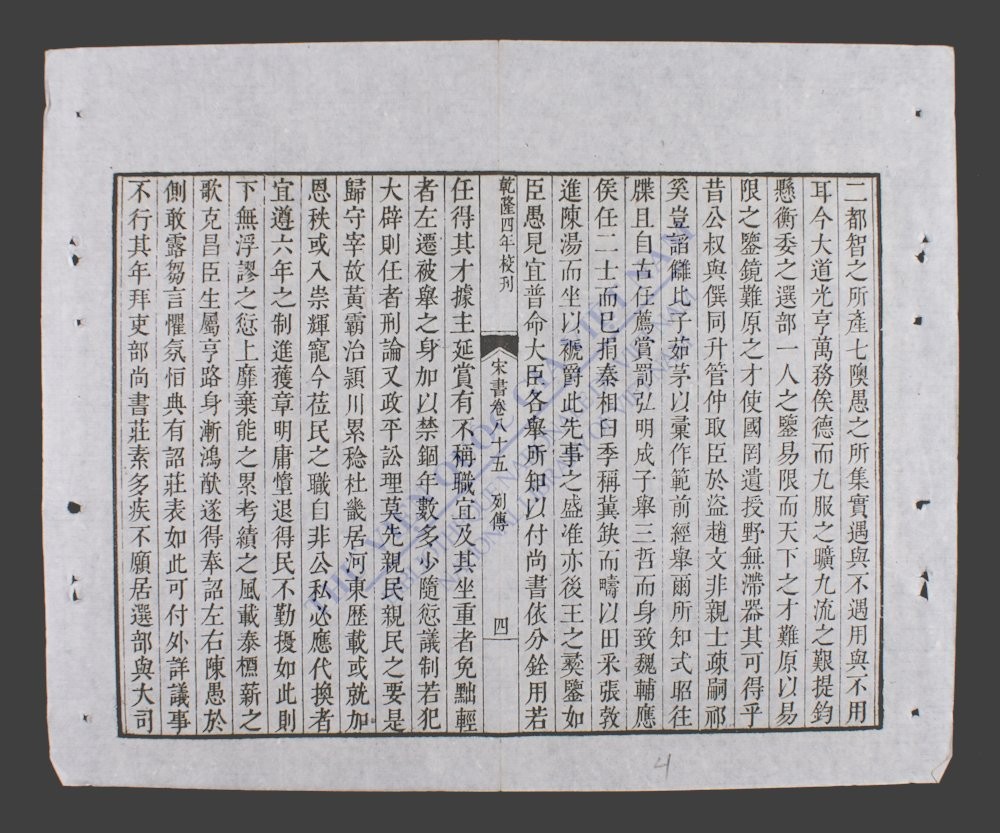 二都智之所產七隩愚之所集實遇與不遇用與不用
耳今大道光亨萬務俟德而九服之曠九流之艱提鈞
懸衡委之選部一人之鑒易限而天下之才難原以易
限之鑒鏡難原之才使國罔遺授野無滯器其可得乎
昔公叔與僎同升管仲取臣於盜趙文非親士疎嗣祁
奚豈諂讎比子茹茅以彙作範前經舉爾所知式昭往
牒且自古任薦賞罰弘明成子舉三哲而身致魏輔應
侯任二士而已捐秦相臼季稱冀缺而疇以田采張敦
進陳湯而坐以褫爵此先事之盛准亦後王之彞鑒如
臣愚見宜普命大臣各舉所知以付尚書依分銓用若
乾隆四年校刊
宋書卷八十五 列傳
四
任得其才據主延賞有不稱職宜及其坐重者免黜輕
者左遷被舉之身加以禁錮年數多少隨愆議制若犯
大辟則任者刑論又政平訟理莫先親民親民之要是
歸守宰故黃霸治潁川累稔杜畿居河東歷載或就加
恩秩或入崇輝寵今莅民之職自非公私必應代換者
宜遵六年之制進獲章明庸憧退得民不勤擾如此則
下無浮謬之愆上靡棄能之累考績之風載泰槱薪之
歌克昌臣生屬亨路身漸鴻猷遂得奉詔左右陳愚於
側敢露芻言懼氛恒典有詔莊表如此可付外詳議事
不行其年拜吏部尚書莊素多疾不願居選部與大司
THƯ VIỆN QUỐC GIA VIỆT NAM
BIBLIOTHÈQUE NATIONALE DU VIETNAM
NATIONAL LIBRARY OF VIETNAM
4